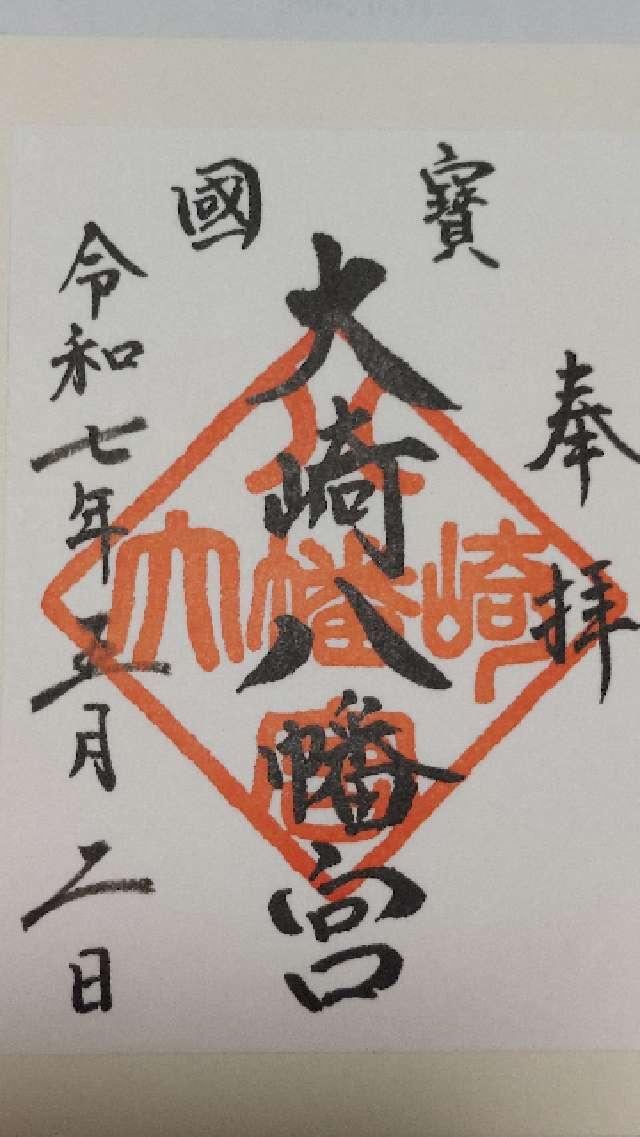 奉拝
國寳
大崎八幡宮
令和七年五月二日
大崎八幡宮